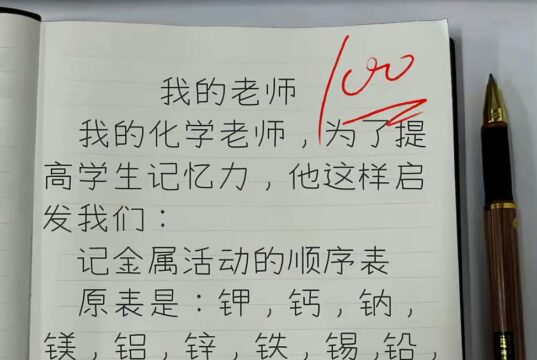 100
我的老师
我的化学老师，为了提
高学生记忆力，他这样启
发我们：
记金属活动的顺序表
原表是：钾，钙，钠，
镁，铝，锌，铁，锡，铅，